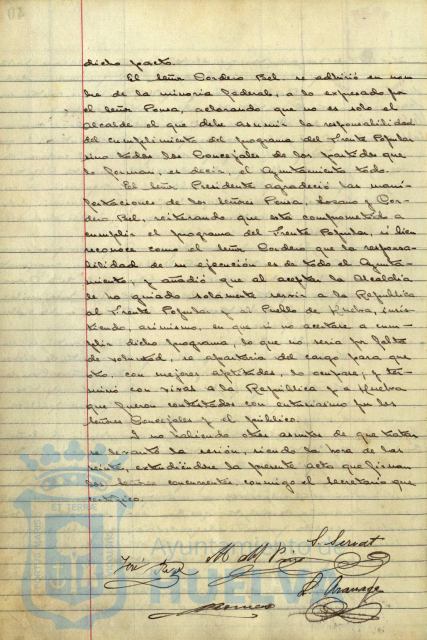 dicho pacto.
El Señor Cordero Bel, se adhirió en nom-
bre de la minoría federal, a lo expresado por
el Señor Ponsa, aclarando que no es solo el
Alcalde el que debe asumir la responsabilidad
del cumplimiento del programa del Frente Popular
sino todos los Concejales de los partidos que
lo forman, es decir, el Ayuntamiento todo.
El Señor Presidente agradeció las mani-
festaciones de los Señores Ponsa, Lozano y Cor-
dero Bel, reiterando que está comprometido a
cumplir el programa del Frente Popular, si bien
reconoce como el Señor Cordero que la responsa-
bilidad de su ejecución es de todo el Ayunta-
miento, y añadió que al aceptar la Alcaldía
le ha guiado solamente servir a la República
al Frente Popular y al Pueblo de Huelva, insis-
tiendo, asimismo, en que si no acertare a cum-
plir dicho programa, lo que no sería por falta
de voluntad, se apartaría del cargo para que
otro, con mejores aptitudes, lo ocupare, y ter-
minó con vivas a la República y a Huelva
que fueron contestados con entusiasmo por los
Señores Concejales y el público.
Y no habiendo otros asuntos de que tratar
se levantó la sesión, siendo la hora de las
veinte, extendiéndose la presente acta que firman
los Señores concurrentes conmigo el Secretario que
certifico.
S. Servat
José
Ayuntamiento de
HUELVA